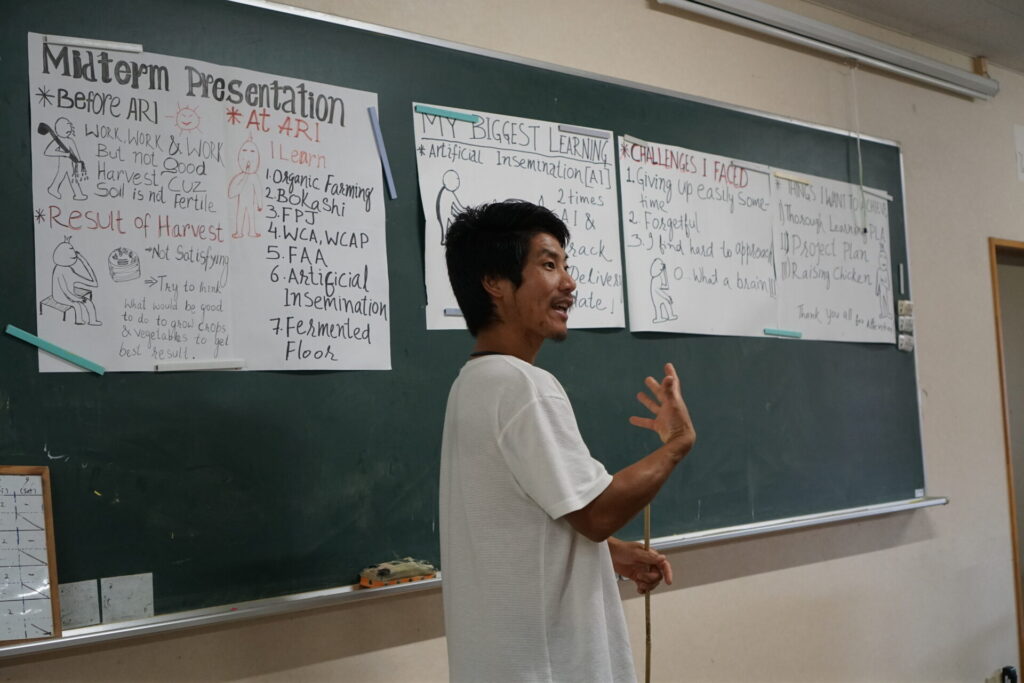 Midterm Presentation
* Before ARI
WORK, WORK & WORK
But not Good
Harvest CUZ
Soil is not fertile
* Result of Harvest
→Not Satisfying
⇒Try to think
what would be good
to do to grow crops
& vegetables to get
best result.
* At ARI
I Learn
1. Organic Farming
2. Bokashi
3. FPJ
4. WCA, WCAP
5. FAA
6. Artificial
Insemination
7. Fermented
Floor
MY BIGGEST LEARNING
* Artificial Insemination [AI]
2 times
AI &
Deliver
* CHALLENGES I FACED
1. Giving up easily Some-
time
2. Forgetful
3. I find hard to approach
O. What a brain!!!
* THINGS I WANT TO
I) Thorough Learning PLA
II) Project Plan
III) Raising Chicken
Thank you all for